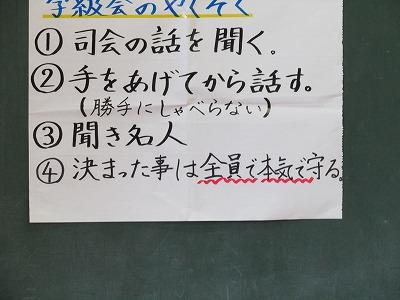 学級会のやくそく
①司会の話を聞く。
②手をあげてから話す。
(勝手にしゃべらない)
③聞き名人
④決まった事は全員で本気で守る。